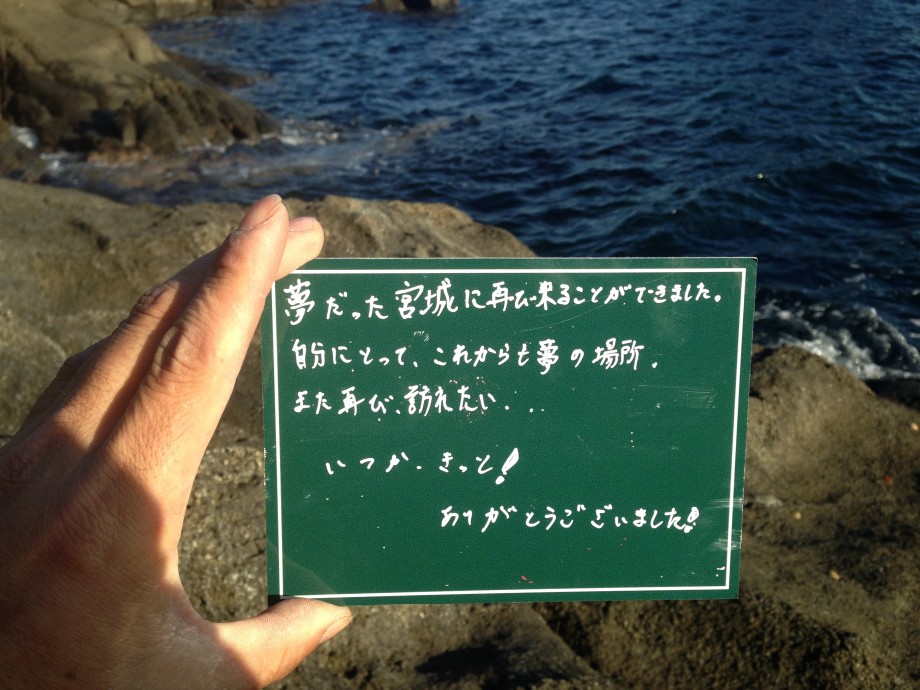 夢だった宮城に再び来ることができました。
自分にとって、これからも夢の場所。
また再び、訪れたい...
いつか、きっと!
ありがとうございました!